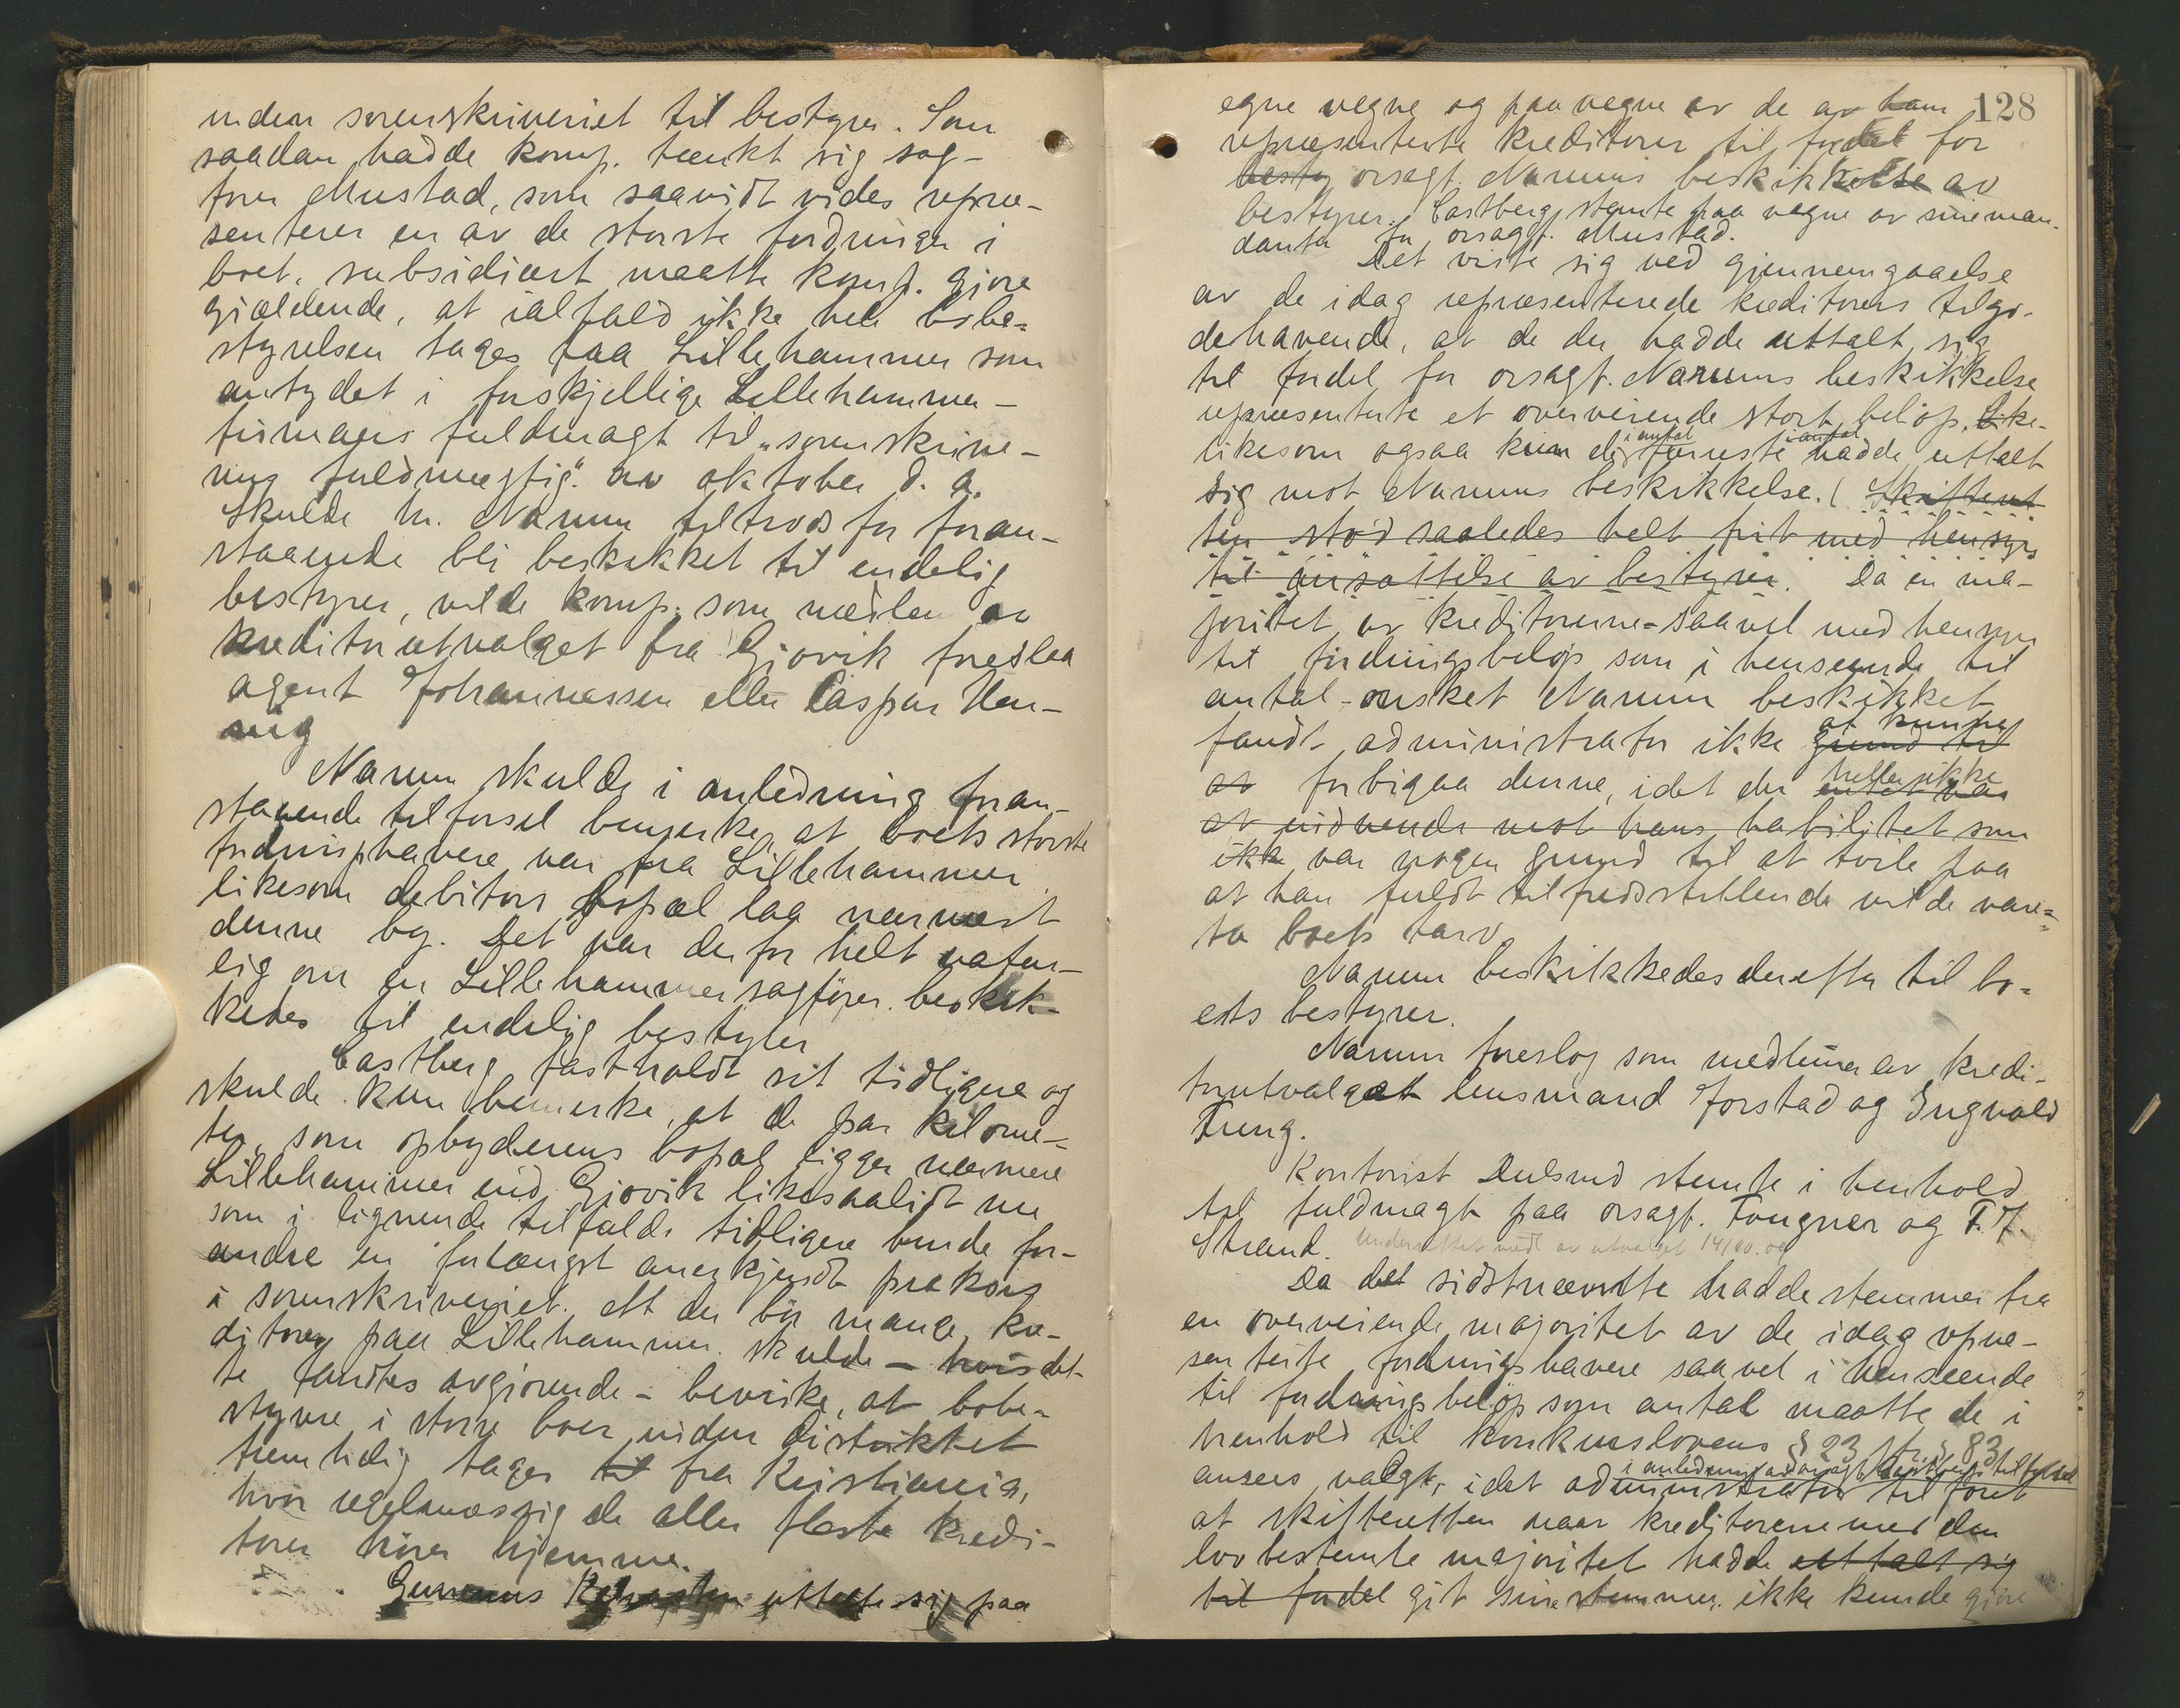 inden sorenskriveriet til bestyrer. Som
saadan hadde komp. tænkt sig sag-
fører Mustad, som saavidt vides repræ-
senterer en av de største fordringer i
boet. subsidiært maatte komp. gjøre
gjældende, at ialfald ikke hele bobe-
styrelsen tages paa Lillehammer som
antydet i forskjellige Lillehammer-
firmaers fuldmagt til "sorenskrive-
rens fuldmægtig" av oktober d. a.
Skulde hr. Narum tiltrods for foran-
staaende bli beskikket til endelig
bestyrer, vilde komp. som medlem av
kreditorutvalget fra Gjøvik foreslaa
agent Johannessen eller Caspar Hen-
nig
Narum skulde i anledning foran-
staaende tilførsel bemerke, at boets største
fordringshavere var fra Lillehammer
likesom debitors bopæl laa nærmest
denne by. Det var derfor helt natur-
lig om en Lillehammersagfører beskik-
kedes til endelig bestyrer
Castberg fastholdt sit tidligere og
skulde kun bemerke, at de par kilome-
ter, som opbyderens bopæl ligger nærmere
Lillehammer end Gjøvik likesaalidt nu
som i lignende tilfælde tidligere burde for-
andre en forlængst anerkjendt praksis
i sorenskriveriet. At der bor mange kre-
ditorer paa Lillehammer skulde - hvis det-
te fandtes avgjørende - bevirke, at bobe-
styrere i større boer inden distriktet
fremtidig tages til fra Kristiania,
hvor regelmæssig de aller fleste kredi-
torer hører hjemme.
uttalte sig paa
128
egne vegne og paa vegne av de av ham
repræsenterte kreditorer til fordel for
besty orsagf. Narums beskikkelse av
bestyrer. Castberg stemte paa vegne av sine man-
danter for orsagf. Mustad.
Det viste sig ved gjennemgaaelse
av de idag repræsenterede kreditorers tilgo-
dehavende, at de der hadde uttalt sig
til fordel for orsagf. Narums beskikkelse
repræsenterte et overveiende stort beløp, like-
i antal i antal
likesom ogsaa kun de færreste hadde uttalt
sig mot Narums beskikkelse. (Skifteret
ten stod saaledes helt frit med hensyn
til ansættelse av bestyrer. Da en ma-
joritet av kreditorerne - saavel med hensyn
til fordringsbeløp som i henseende til
antal - ønsket Narum beskikket
at kunne
fandt administrator ikke grund til
at forbigaa denne, idet der
heller ikke
intet var
at indvende mot hans habilitet som
ikke var nogen grund til at tvile paa
at han fuldt tilfredsstillende vilde vare-
ta boets tarv.
Narum beskikkedes derefter til bo-
ets bestyrer.
Narum foreslog som medlemer av kredi-
torutvalget lensmand Jorstad og Ingvald
Fung.
Kontorist Dulsrud stemte i henhold
til fuldmagt paa orsagf. Fougner og T. J.
Strand.
Da det sidstnævnte hadde stemmer fra
en overveiende majoritet av de idag repræ-
senterte fordringshavere saavel i henseende
til fordringsbeløp som antal maatte de i
henhold til konkurslovens § 23 jfr. § 83
i anledning av orsagf. Castbergs tilførsel
ansees valgt, idet administrator tilføiet
at skifteretten naar kreditorerne med den
lovbestemte majoritet hadde uttalt sig
til fordel git sine stemmer ikke kunde gjøre